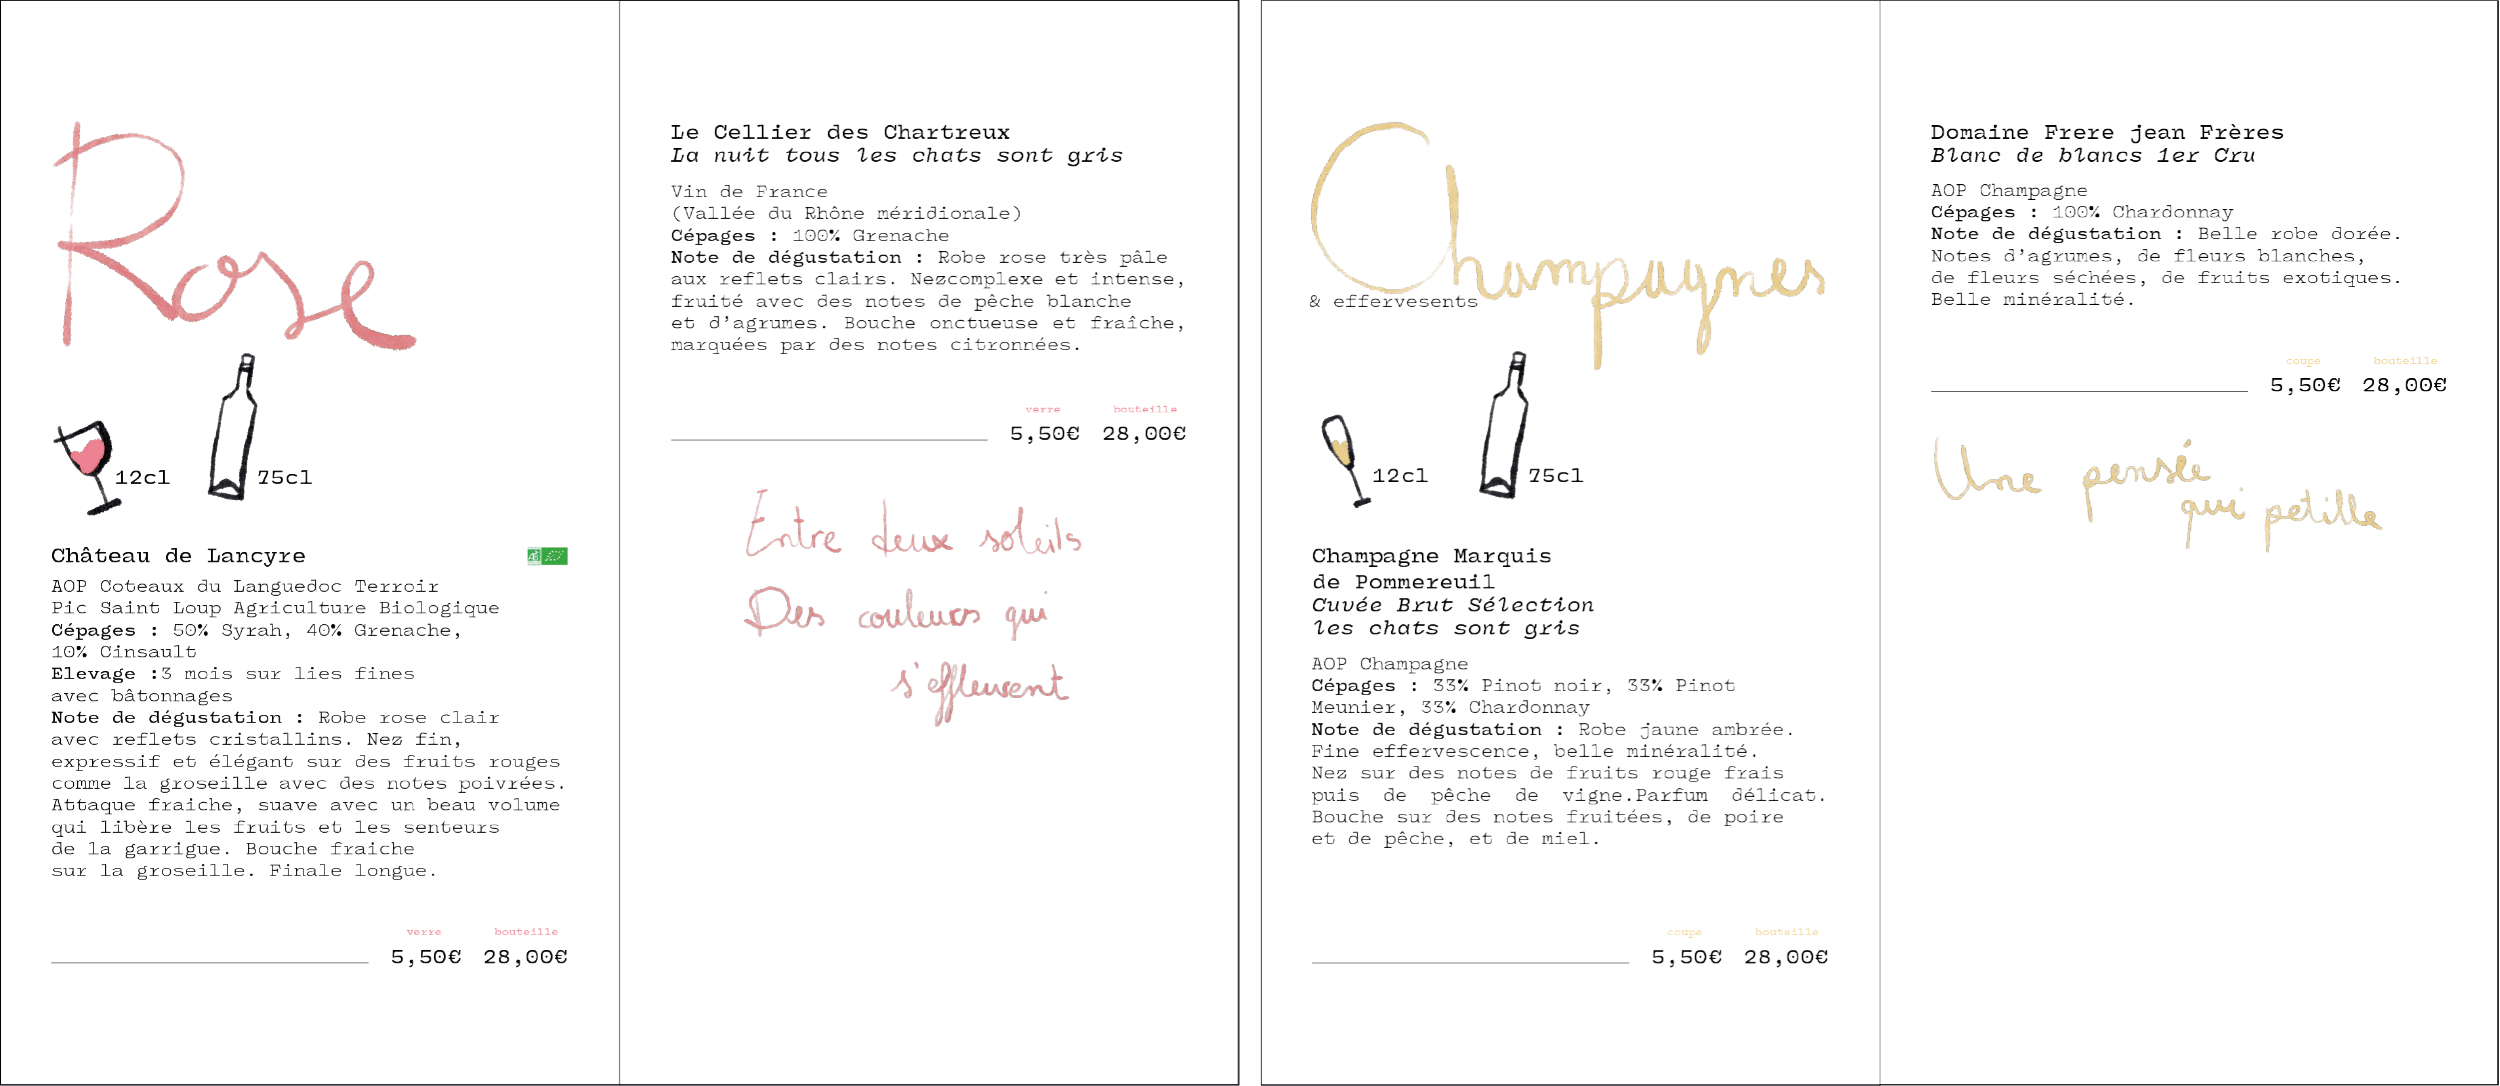 Rose
12cl
75cl
Château de Lancyre
AOP Coteaux du Languedoc Terroir
Pic Saint Loup Agriculture Biologique
Cépages : 50% Syrah, 40% Grenache,
10% Cinsault
Elevage :3 mois sur lies fines
avec bâtonnages
Note de dégustation : Robe rose clair
avec reflets cristallins. Nez fin,
expressif et élégant sur des fruits rouges
comme la groseille avec des notes poivrées.
Attaque fraiche, suave avec un beau volume
qui libère les fruits et les senteurs
de la garrigue. Bouche fraiche
sur la groseille. Finale longue.
verre bouteille
5,50€ 28,00€
Le Cellier des Chartreux
La nuit tous les chats sont gris
Vin de France
(Vallée du Rhône méridionale)
Cépages : 100% Grenache
Note de dégustation : Robe rose très pâle
aux reflets clairs. Nezcomplexe et intense,
fruité avec des notes de pêche blanche
et d’agrumes. Bouche onctueuse et fraîche,
marquées par des notes citronnées.
verre bouteille
5,50€ 28,00€
Entre deux soleils
Des couleurs qui
s'effleurent
Champagnes
& effervesents
12cl
75cl
Champagne Marquis
de Pommereuil
Cuvée Brut Sélection
les chats sont gris
AOP Champagne
Cépages : 33% Pinot noir, 33% Pinot
Meunier, 33% Chardonnay
Note de dégustation : Robe jaune ambrée.
Fine effervescence, belle minéralité.
Nez sur des notes de fruits rouge frais
puis de pêche de vigne.Parfum délicat.
Bouche sur des notes fruitées, de poire
et de pêche, et de miel.
coupe bouteille
5,50€ 28,00€
Domaine Frere jean Frères
Blanc de blancs 1er Cru
AOP Champagne
Cépages : 100% Chardonnay
Note de dégustation : Belle robe dorée.
Notes d’agrumes, de fleurs blanches,
de fleurs séchées, de fruits exotiques.
Belle minéralité.
coupe bouteille
5,50€ 28,00€
Une pensée
qui petille